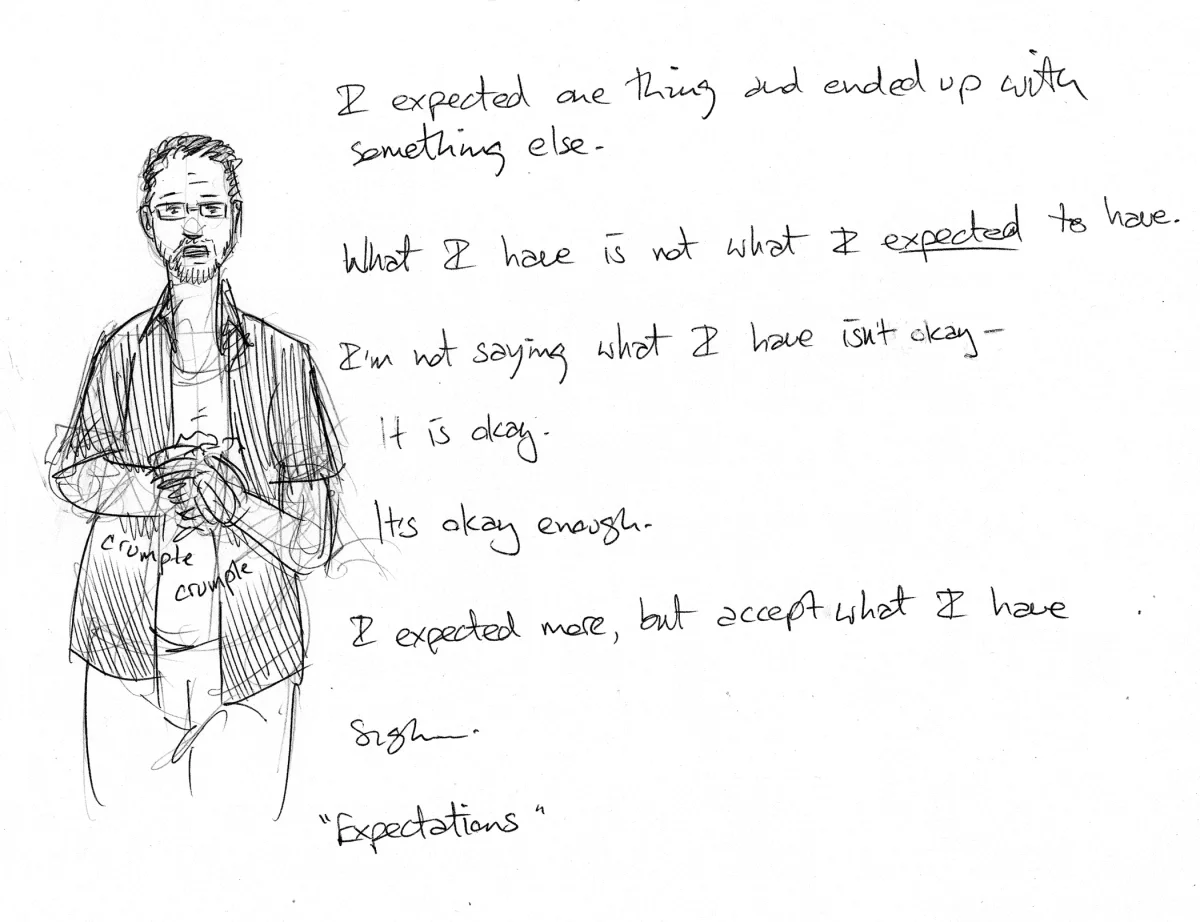 I expected one thing and ended up with
something else.
What I have is not what I expected to have.
I'm not saying what I have isn't okay—
It is okay.
It's okay enough.
crumple
crumple
I expected more, but accept what I have
Sigh.
"Expectations"